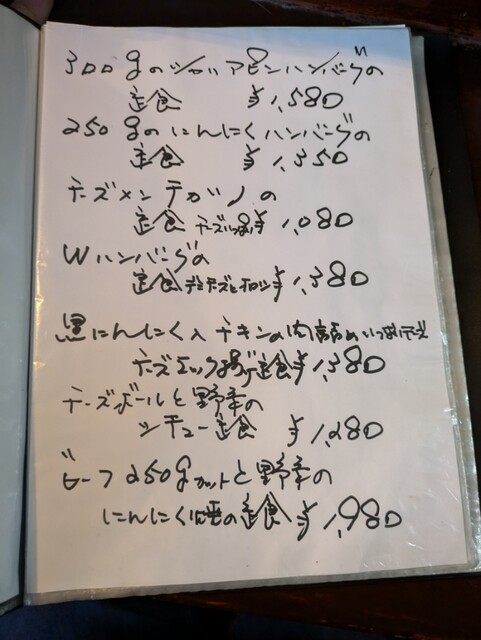 300gのジャリアピンハンバーグの
定食 ¥1,580
250gのにんにくハンバーグの
定食 ¥1,350
チーズメンチカツの
定食 チーズいっぱい ¥1,080
Wハンバーグの
定食 デミチーズと ¥1,380
黒にんにく入チキンの いっぱいチーズ
チーズミックス 定食 ¥1,380
チーズボールと野菜の
シチュー定食 ¥1,280
ビーフ250gカットと野菜の
にんにく 定食 ¥1,980